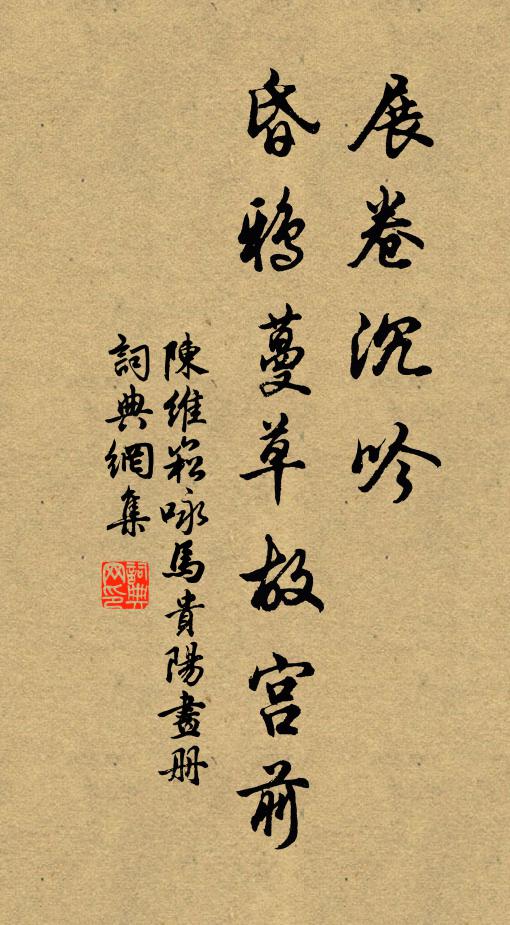 展卷沉吟
昏鴉蔓草故宮前
陳維崧咏馬貴陽畫册
詞典網集
詞典網印